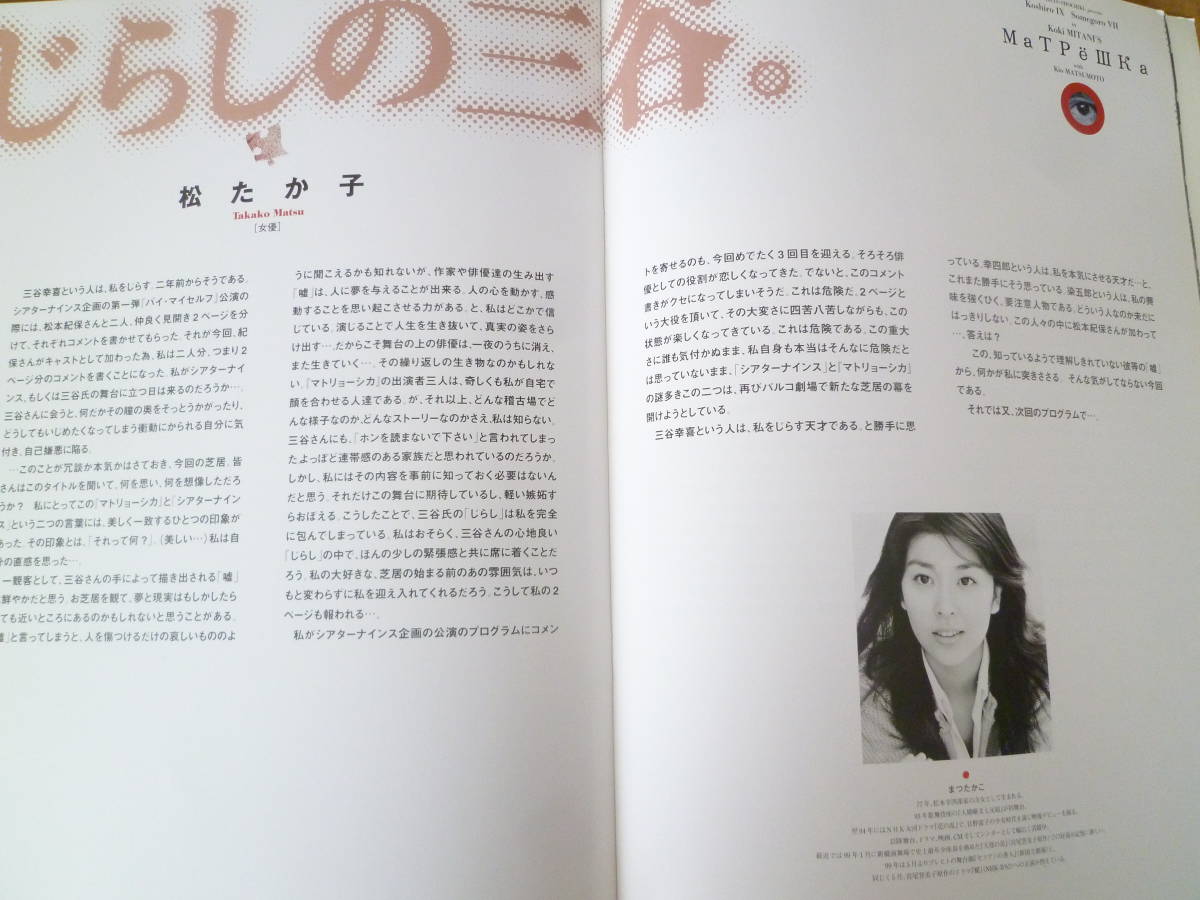 じらしの三谷。
松たか子
Takako Matsu
[女優]
三谷幸喜という人は、私をじらす。二年前からそうである。
シアターナインス企画の第一弾『バイ・マイセルフ』公演の
際には、松本紀保さんと二人、仲良く見開き2ページを分
けて、それぞれコメントを書かせてもらった。それが今回、紀
保さんがキャストとして加わった為、私は二人分、つまり2
ページ分のコメントを書くことになった。私がシアターナイ
ンス、もしくは三谷氏の舞台に立つ日は来るのだろうか…。
三谷さんに会うと、何だかその瞳の奥をそっとうかがったり、
どうしてもいじめたくなってしまう衝動にかられる自分に気
付き、自己嫌悪に陥る。
…このことが冗談か本気かはさておき、今回の芝居。皆
さんはこのタイトルを聞いて、何を思い、何を想像しただろ
うか? 私にとってこの『マトリョーシカ』と「シアターナイン
ス」という二つの言葉には、美しく一致するひとつの印象が
あった。その印象とは、「それって何?」。(美しい…)私は自
分の直感を思った…。
一観客として、三谷さんの手によって描き出される「嘘」
鮮やかだと思う。お芝居を観て、夢と現実はもしかしたら
ても近いところにあるのかもしれないと思うことがある。
嘘」と言ってしまうと、人を傷つけるだけの哀しいもののよ
うに聞こえるかも知れないが、作家や俳優達の生み出す
「嘘」は、人に夢を与えることが出来る。人の心を動かす、感
動することを思い起こさせる力がある。と、私はどこかで信
じている。演じることで人生を生き抜いて、真実の姿をさら
け出す…。だからこそ舞台の上の俳優は、一夜のうちに消え、
また生きていく…。その繰り返しの生き物なのかもしれな
い。『マトリョーシカ』の出演者三人は、奇しくも私が自宅で
顔を合わせる人達である。が、それ以上、どんな稽古場でど
んな様子なのか、どんなストーリーなのかさえ、私は知らない。
三谷さんにも、「ホンを読まないで下さい」と言われてしまっ
たよっぽど連帯感のある家族だと思われているのだろうか。
しかし、私にはその内容を事前に知っておく必要はないん
だと思う。それだけこの舞台に期待しているし、軽い嫉妬す
らおぼえる。こうしたことで、三谷氏の「じらし」は私を完全
に包んでしまっている。私はおそらく、三谷さんの心地良い
「じらし」の中で、ほんの少しの緊張感と共に席に着くことだ
ろう。私の大好きな、芝居の始まる前のあの雰囲気は、いつ
もと変わらずに私を迎え入れてくれるだろう。こうして私の2
ページも報われる…。
私がシアターナインス企画の公演のプログラムにコメン
Koshiro IX Somegoro VII
in
Koki MITANI'S
МаТРёШКа
with
Kio MATSUMOTO
トを寄せるのも、今回めでたく3回目を迎える。そろそろ俳
優としての役割が恋しくなってきた。でないと、このコメント
書きがクセになってしまいそうだ。これは危険だ。2ページと
いう大役を頂いて、その大変さに四苦八苦しながらも、この
状態が楽しくなってきている。これは危険である。この重大
さに誰も気付かぬまま、私自身も本当はそんなに危険だと
は思っていないまま、「シアターナインス」と『マトリョーシカ』
の謎多きこの二つは、再びパルコ劇場で新たな芝居の幕を
開けようとしている。
三谷幸喜という人は、私をじらす天才である。と勝手に思
っている。幸四郎という人は、私を本気にさせる天才だ…と、
これまた勝手にそう思っている。染五郎という人は、私の興
味を強くひく、要注意人物である。どういう人なのか未だに
はっきりしない。この人々の中に松本紀保さんが加わって
…、答えは?
この、知っているようで理解しきれていない彼等の「嘘」
から、何かが私に突きささる。そんな気がしてならない今回
である。
それでは又、次回のプログラムで…。
まつたかこ
77年、松本幸四郎家の次女として生まれる。